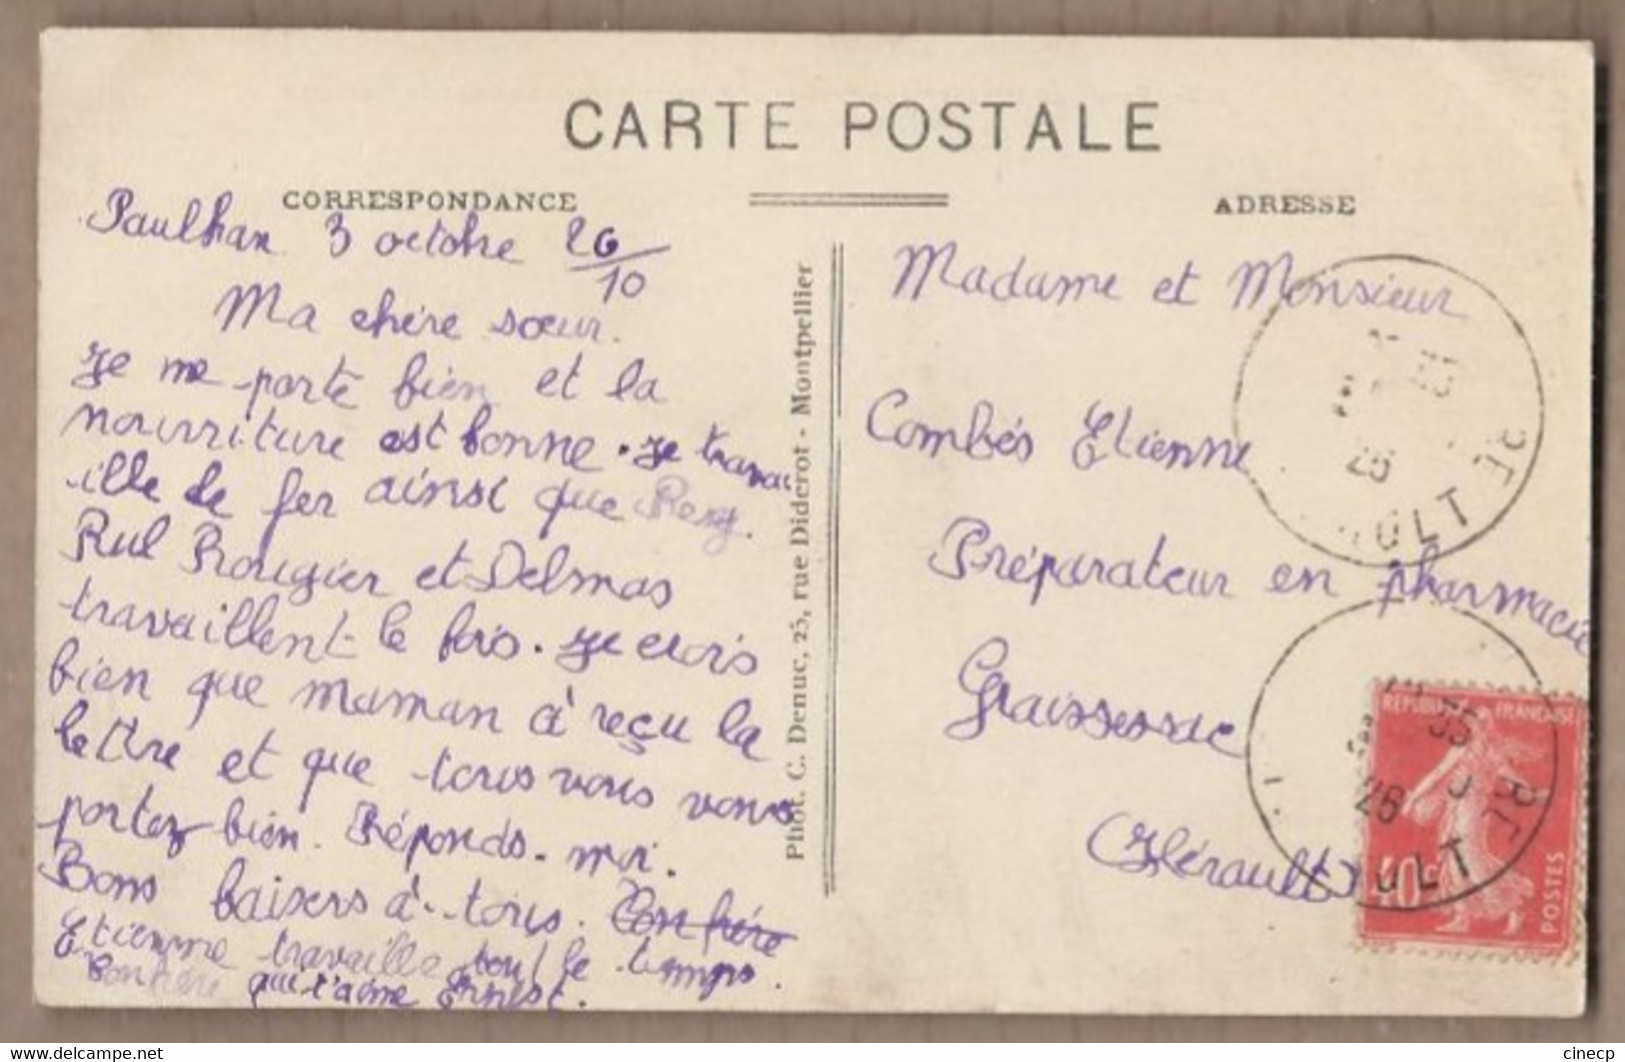 CARTE POSTALE
CORRESPONDANCE
ADRESSE
Paulhan 3 octobre 26/10
Ma chère sœur.
Je me porte bien et la
nourriture est bonne. Je trava
ille de fer ainsi que Remy.
Rul Rougier et Delmas
travaillent le bois. Je crois
bien que maman à reçu la
lettre et que tous vous vous
portez bien. Réponds-moi.
Bons baisers à tous. Ton frére
Etienne travaille tout le temps.
Ton frére qui t'aime Ernest.
Phot. C. Denuc, 25, rue Diderot - Montpellier
Madame et Monsieur
Combés Etienne
Préparateur en pharmacie
Graissessac
(Hérault)
26
ULT RE
RÉPUBLIQUE FRANÇAISE
40c
POSTES
35
26
ULT RE
cinecp
https://www.delcampe.net